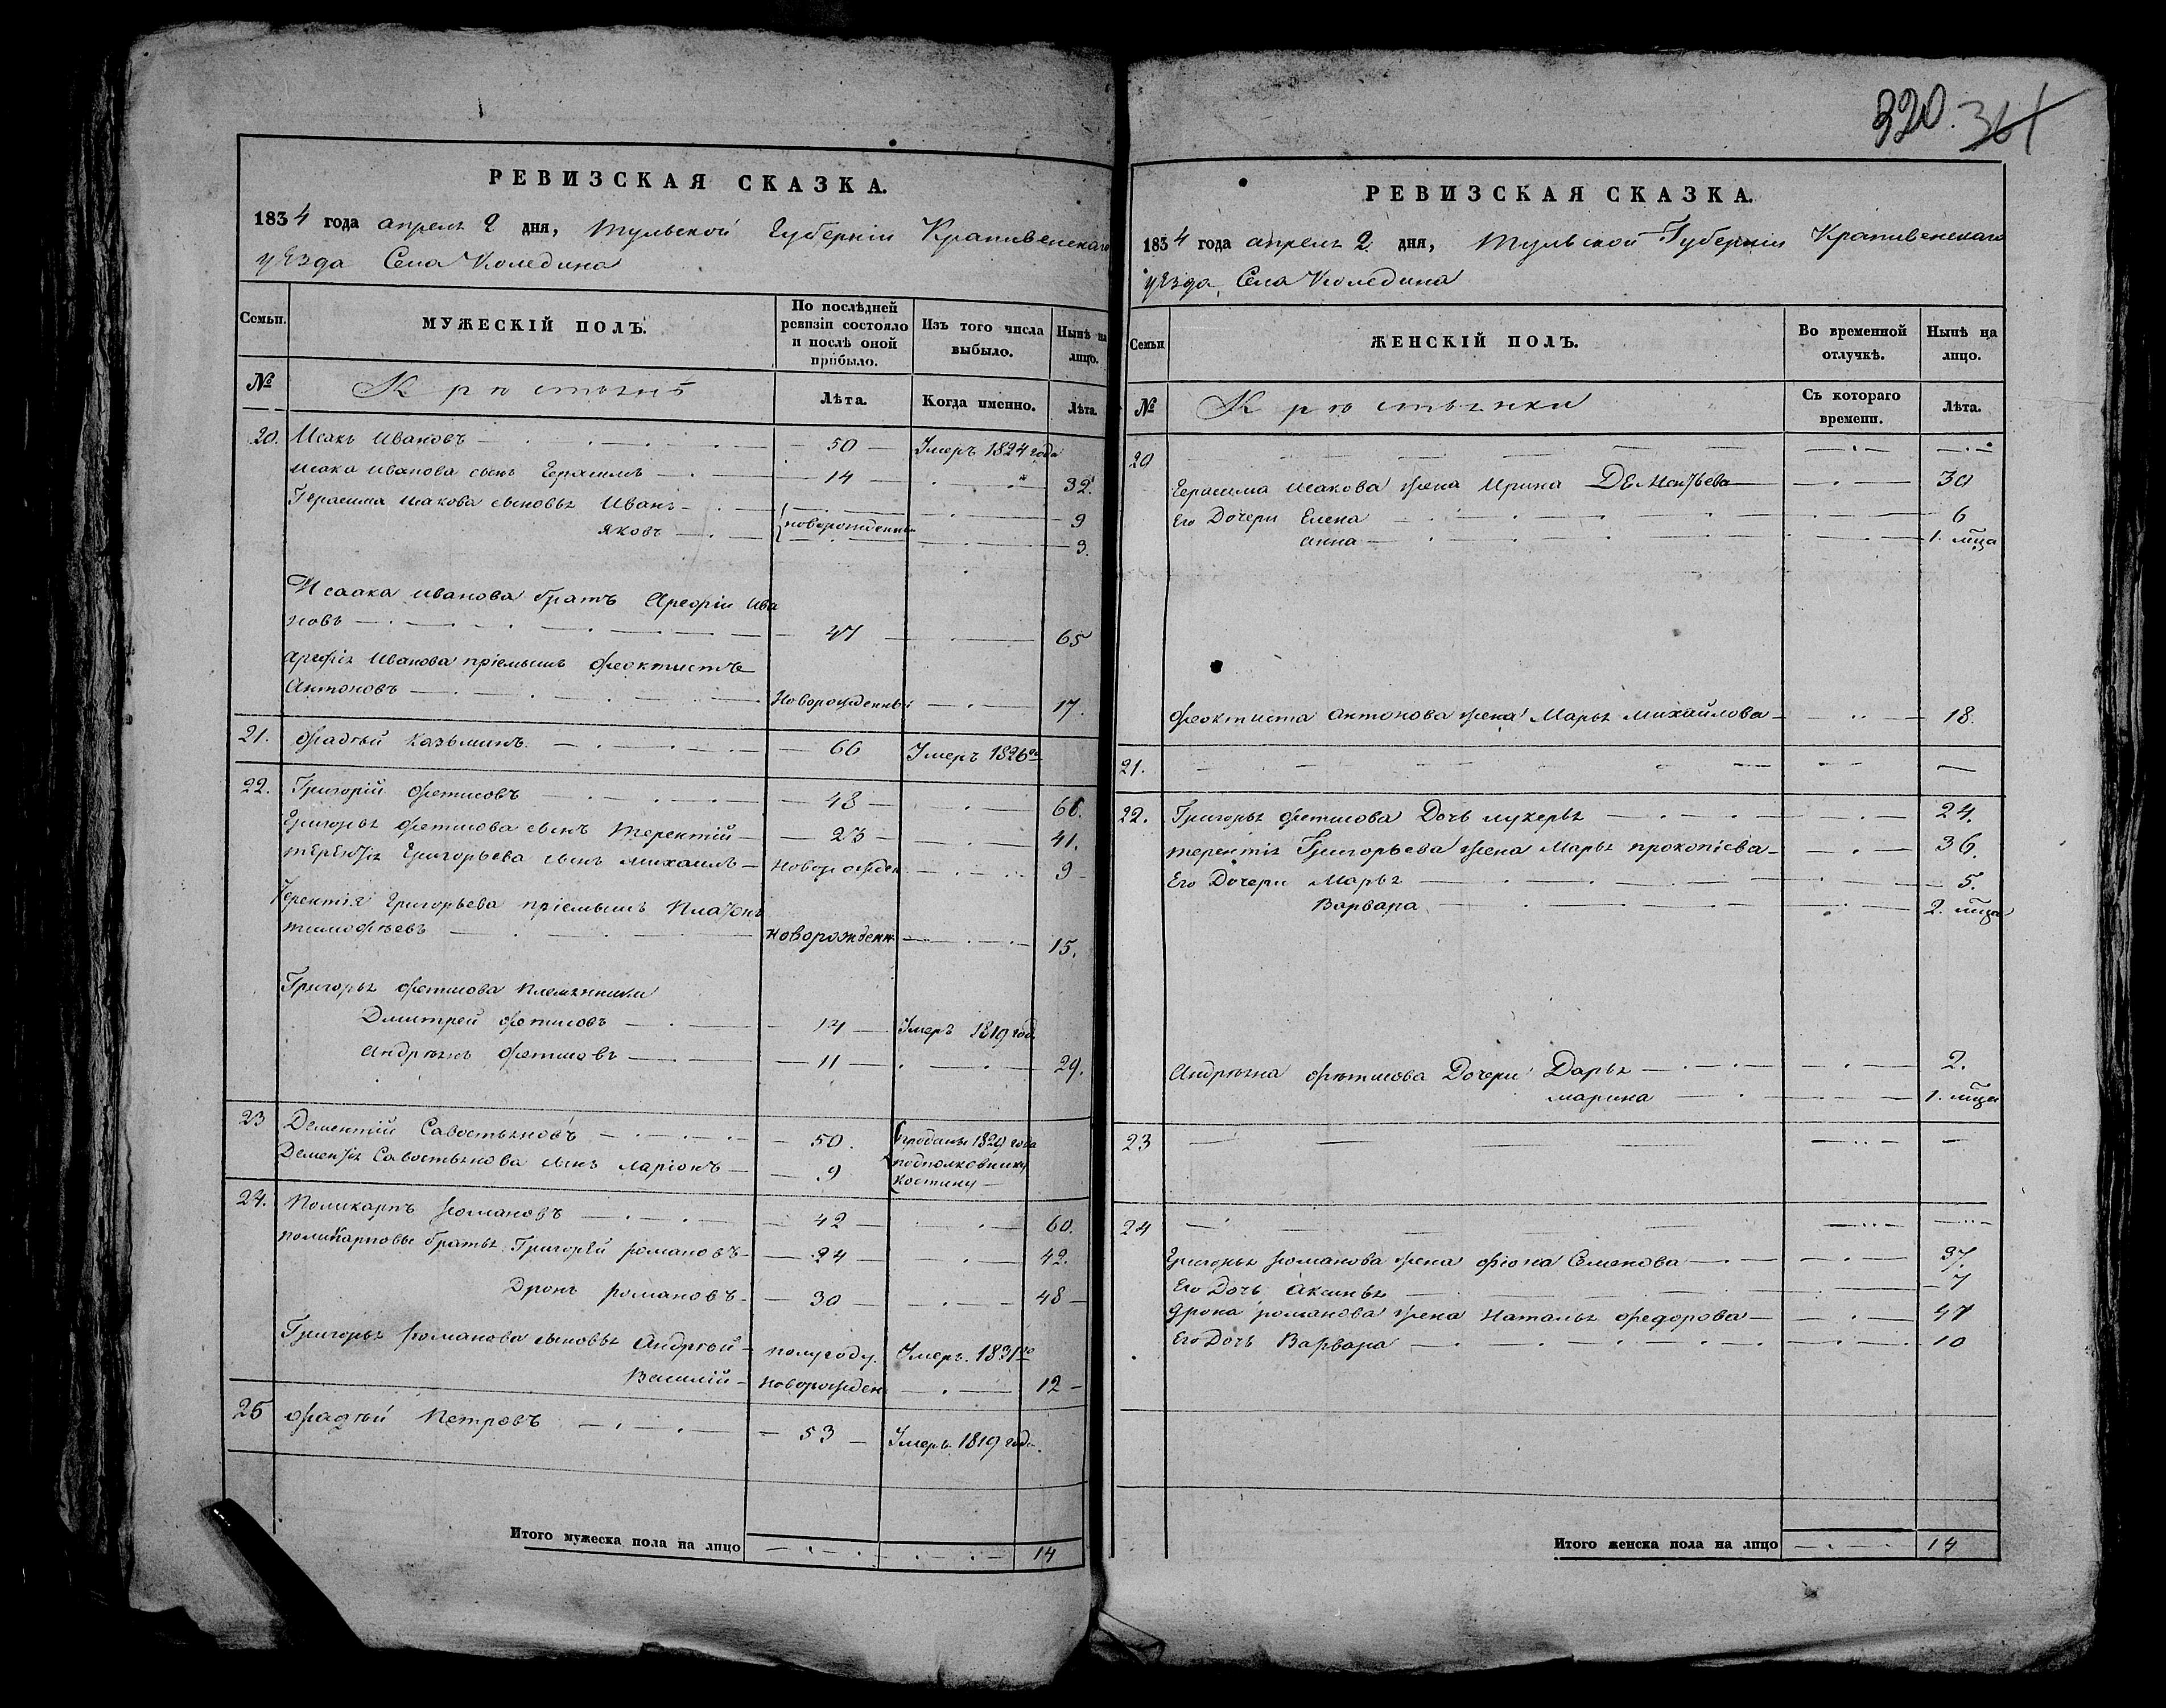 320. 361
РЕВИЗСКАЯ СКАЗКА.
1834 года апреля 2 дня, Тульской Губерніи Крапивенскаго
уѣзда Села Коледина
Семьи. МУЖЕСКІЙ ПОЛЪ. По послѣдней ревизіи состояло и послѣ оной прибыло. Изъ того числа выбыло. Нынѣ на лицо.
№ Крѣстьянѣ Лѣта. Когда именно. Лѣта.
20. Исакъ Ивановъ 50 Умеръ 1824 года
Исака Иванова сынъ Герасимъ 14 32.
Герасима Исакова сыновья Иванъ новорожденны 9
Яковъ 3.
Исаака Иванова братъ Арефій Ива
новъ 47 65
Арефія Иванова пріемышъ Феоктистъ
Антоновъ Новорожденный 17.
21. Фадѣй Казьминъ 66 Умеръ 1826го
22. Григорій Фетисовъ 48 66.
Григорья Фетисова сынъ Терентій 23 41.
Терентія Григорьева сынъ Михаилъ Новорожден 9
Терентія Григорьева пріемышъ Платонъ
Тимофѣевъ новорожденн 15.
Григорья Фетисова племянники
Дмитрей Фетисовъ 14 Умеръ 1819 года
Андрѣянъ Фетисовъ 11 29.
23 Дементій Савостьяновъ 50. проданы 1829 года
Дементія Савостьянова сынъ Ларіонъ 9 подполковнику
Костину
24. Поликарпъ Романовъ 42 60.
Поликарповы братья Григорѣй Романовъ 24 42.
Дронъ Романовъ 30 48
Григорья Романова сыновья Андрѣй полугоду. Умеръ 1831го
Василій Новорожден 12
25 Фадѣй Петровъ 53 Умеръ 1819 года.
Итого мужеска пола на лицо 14
РЕВИЗСКАЯ СКАЗКА.
1834 года апреля 2 дня, Тульской Губерніи Крапивенскаго
уѣзда, Села Коледина
Семьи ЖЕНСКІЙ ПОЛЪ. Во временной отлучкѣ. Нынѣ на лицо.
№ Крѣстьянки Съ котораго времени. Лѣта.
20
Герасима Исакова жена Ирина Дементьева 30
Его Дочери Елена 6
Анна 1. мѣца
Феоктиста Антонова жена Марья Михайлова 18.
21.
22. Григорья Фетисова Дочь Лукерья 24.
Терентія Григорьева жена Марья Прокопіева 36.
Его Дочери Марья 5.
Варвара 2. мѣца
Андрѣяна Фѣтисова Дочери Дарья 2.
Марина 1. мѣца
23
24
Григорья Романова жена Фіона Семенова 37.
Его Дочь Аксинья 7
Дрона Романова жена Наталья Федорова 47
Его Дочь Варвара 10
Итого женска пола на лицо 14